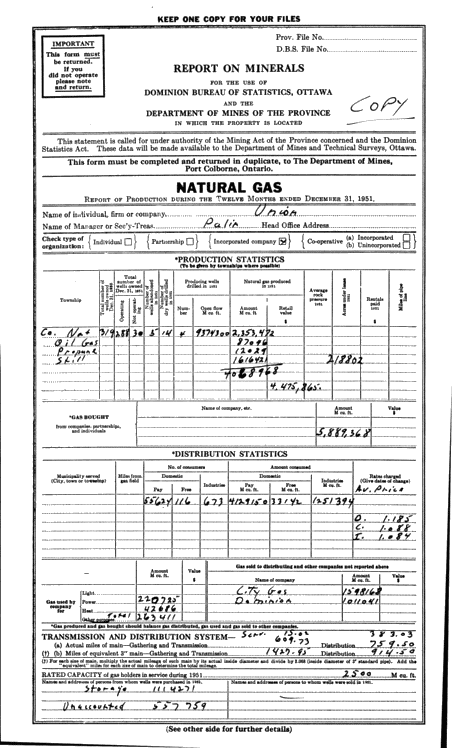 KEEP ONE COPY FOR YOUR FILES
IMPORTANT
This form must
be returned.
If you
did not operate
please note
and return.
Prov. File No.
D.B.S. File No.
REPORT ON MINERALS
FOR THE USE OF
DOMINION BUREAU OF STATISTICS, OTTAWA
AND THE
DEPARTMENT OF MINES OF THE PROVINCE
IN WHICH THE PROPERTY IS LOCATED
COPY
This statement is called for under authority of the Mining Act of the Province concerned and the Dominion
Statistics Act. These data will be made available to the Department of Mines and Technical Surveys, Ottawa.
This form must be completed and returned in duplicate, to The Department of Mines,
Port Colborne, Ontario.
NATURAL GAS
REPORT OF PRODUCTION DURING THE TWELVE MONTHS ENDED DECEMBER 31, 1951.
Name of individual, firm or company Union
Name of Manager or Sec'y-Treas. Head Office Address
Check type of organization: Individual Partnership Incorporated company Co-operative (a) Incorporated (b) Unincorporated
*PRODUCTION STATISTICS
(To be given by townships where possible)
Township
Total number of wells owned Dec. 31, 1951
Operating
Producing wells drilled in 1951
Number
Open flow M cu. ft.
Natural gas produced in 1951
Amount M cu. ft.
Retail value $
Average rock pressure 1951
Acres under lease 1951
Rentals paid 1951 $
Miles of pipe line
Co. Nat 319 288 30 5 14 4 2,353,472
Oil Gas 87096
Propane 12029
Still 1616421 218802
4068968
4,475,865.
*GAS BOUGHT
from companies, partnerships, and individuals
Name of company, etc.
Amount M cu. ft.
Value $
5,889,368
*DISTRIBUTION STATISTICS
Municipality served (City, town or township)
Miles from gas field
No. of consumers
Domestic
Pay Free
Industries
Amount consumed
Domestic
Pay M cu. ft. Free M cu. ft.
Industries M cu. ft.
Rates charged (Give dates of change)
Av. Price
55624 116 673 4129150 33142 1251394
D. 1.185
C. 1.088
I. 1.084
Amount M cu. ft.
Value $
Gas sold to distributing and other companies not reported above
Name of company
Amount M cu. ft.
Value $
Gas used by company for
Light
Power 220725
Heat 42686
Total 263411
City Gas 1598168
Dominion 1011041
*Gas produced and bought should balance gas distributed, gas used and gas sold to other companies.
TRANSMISSION AND DISTRIBUTION SYSTEM— Serv. 383.03
(a) Actual miles of main—Gathering and Transmission 609.73 Distribution 759.50
(†) (b) Miles of equivalent 3" main—Gathering and Transmission 1427.95 Distribution 914.50
(†) For each size of main, multiply the actual mileage of each main by its actual inside diameter and divide by 3.068 (inside diameter of 3" standard pipe). Add the "equivalent" miles for each size of main to determine the total mileage.
RATED CAPACITY of gas holders in service during 1951 2500 M cu. ft.
Names and addresses of persons from whom wells were purchased in 1951.
Names and addresses of persons to whom wells were sold in 1951.
Storage 1114271
Unaccounted 557759
(See other side for further details)